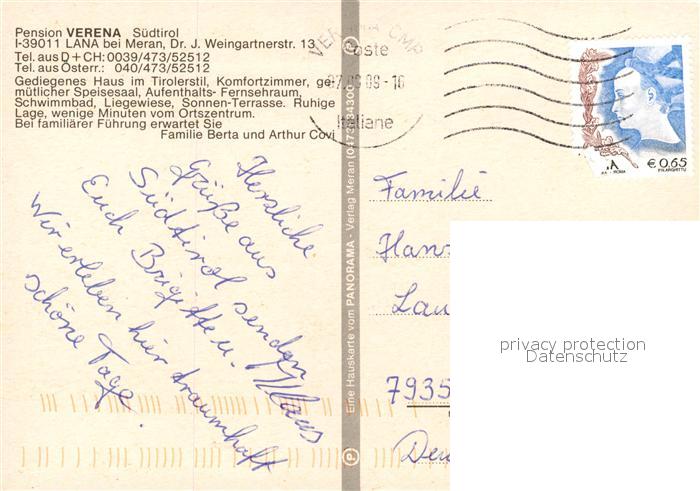 Pension VERENA Südtirol
I-39011 LANA bei Meran, Dr. J. Weingartnerstr. 13
Tel. aus D + CH: 0039/473/52512
Tel. aus Österr.: 040/473/52512
Gediegenes Haus im Tirolerstil, Komfortzimmer, ge-
mütlicher Speisesaal, Aufenthalts- Fernsehraum,
Schwimmbad, Liegewiese, Sonnen-Terrasse. Ruhige
Lage, wenige Minuten vom Ortszentrum.
Bei familiärer Führung erwartet Sie
Familie Berta und Arthur Covi
Herzliche
Grüße aus
Südtirol senden
Euch Brigitte u. Klaus
Wir erleben hier traumhaft
schöne Tage.
Eine Hauskarte vom PANORAMA - Verlag Meran
VERONA CMP
Poste
Italiane
€ 0,65
A
ROMA
Familie
Hans
Lau
7935
Deu
privacy protection
Datenschutz